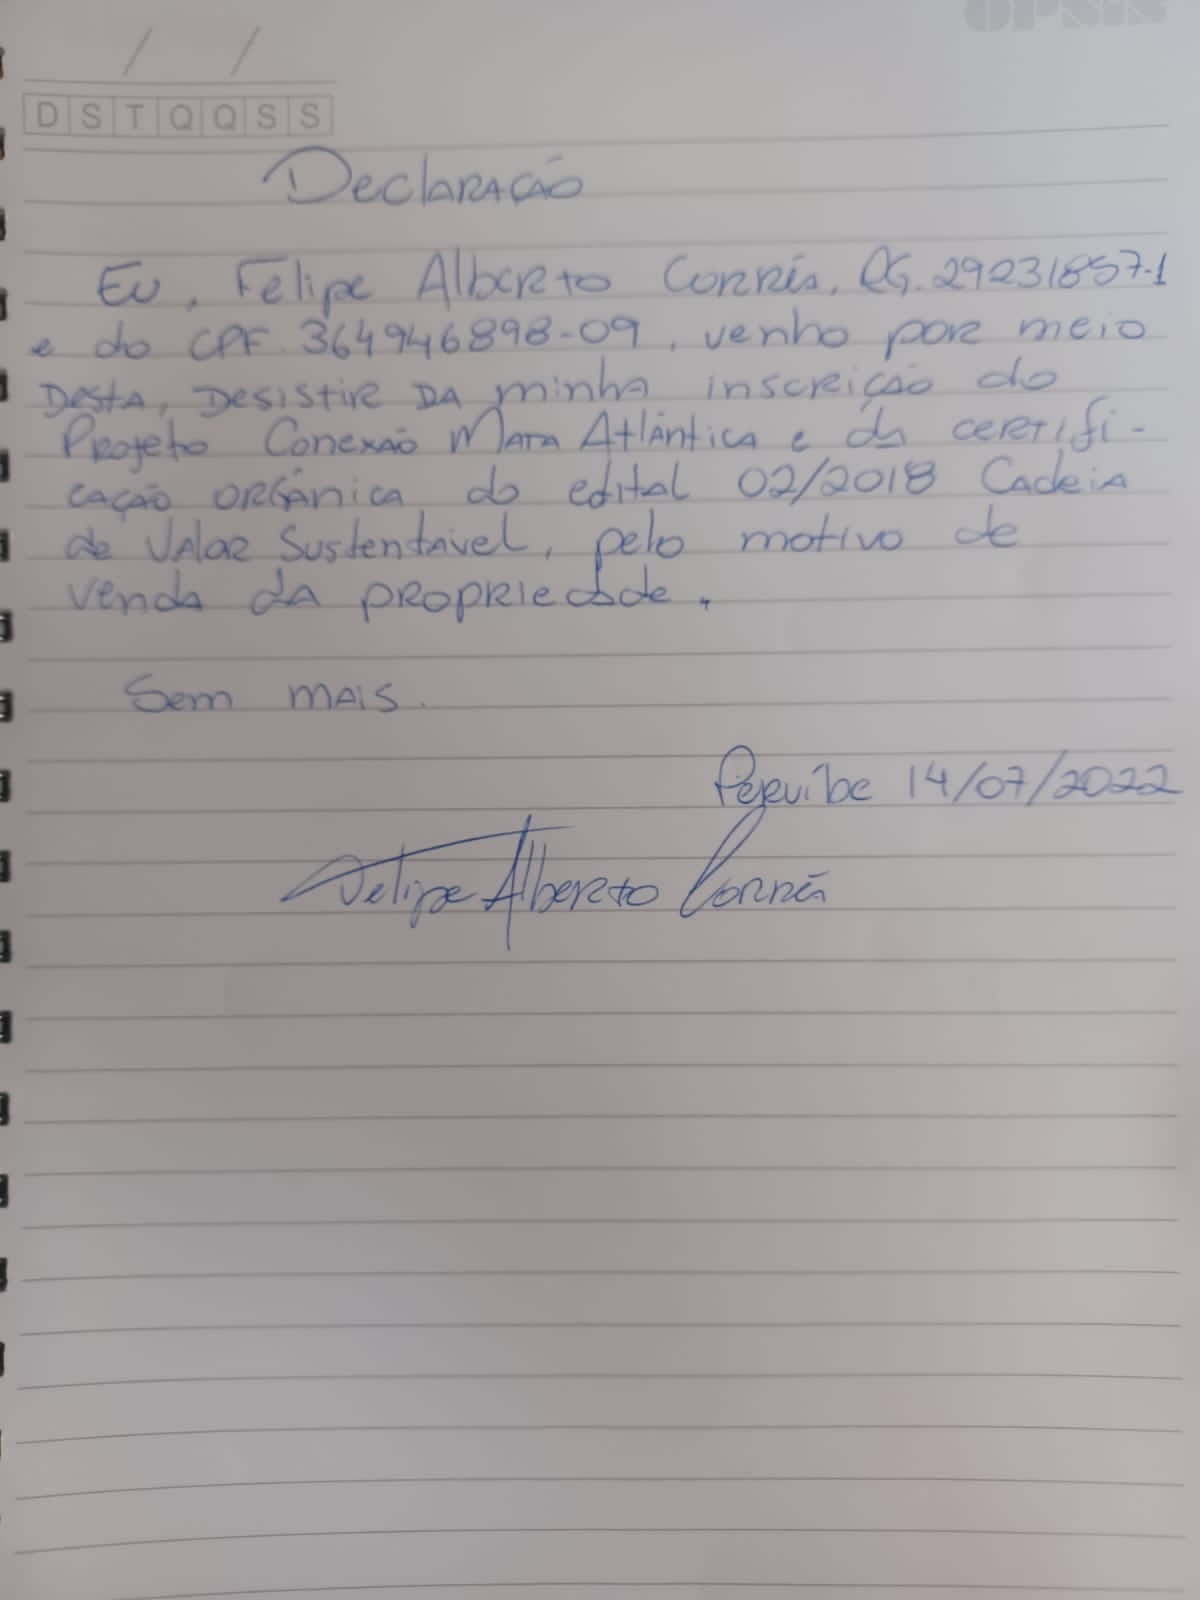 OPSIS
/ /
D S T Q Q S S
Declaração
Eu, Felipe Alberto Corrêa, RG. 29231857-1
e do CPF. 364946898-09, venho por meio
desta, desistir da minha inscrição do
Projeto Conexão Mata Atlântica e da certifi-
cação orgânica do edital 02/2018 Cadeia
de Valor Sustentável, pelo motivo de
venda da propriedade.
Sem mais.
Peruíbe 14/07/2022
Felipe Alberto Corrêa